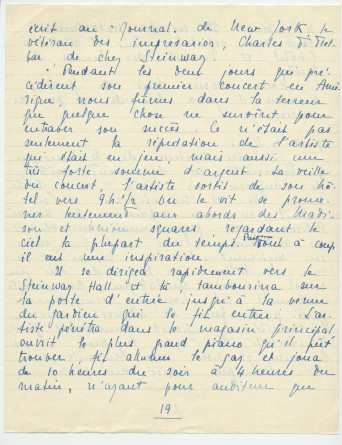 écrit au "Journal" de New York le
vétéran des impresarios, Charles F. Tret-
bar de chez Steinway.
"Pendant les deux jours qui pré-
cédèrent son premier concert en Amé-
rique nous fûmes dans la terreur
que quelque chose ne survînt pour
entraver son succès. Ce n'était pas
seulement la réputation de l'artiste
qui était en jeu, mais aussi une
très forte somme d'argent. La veille
du concert, l'artiste sortit de son hô-
tel vers 9 h. 1/2 On le vit se prome-
ner lentement aux abords des Madi-
son et Union squares regardant le
ciel la plupart du temps. Puis tout à coup
il eut une inspiration.
Il se dirigea rapidement vers le
Steinway Hall et là, tambourina sur
la porte d'entrée jusqu'à la venue
du gardien qui le fit entrer. L'ar-
tiste pénétra dans le magasin principal
ouvrit le plus grand piano qu'il pût
trouver, fit allumer le gaz et joua
de 10 heures du soir à 4 heures du
matin, n'ayant pour auditeur que
19